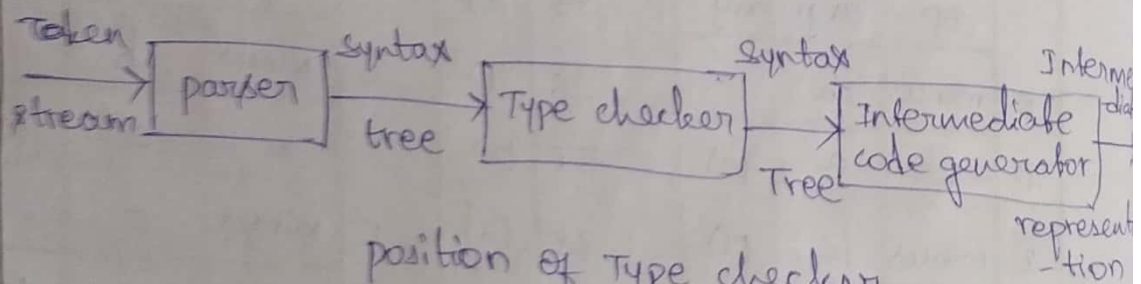 Token
stream
parser
syntax
tree
Type checker
syntax
Tree
Intermediate
code generator
represent
-tion
position of Type checker